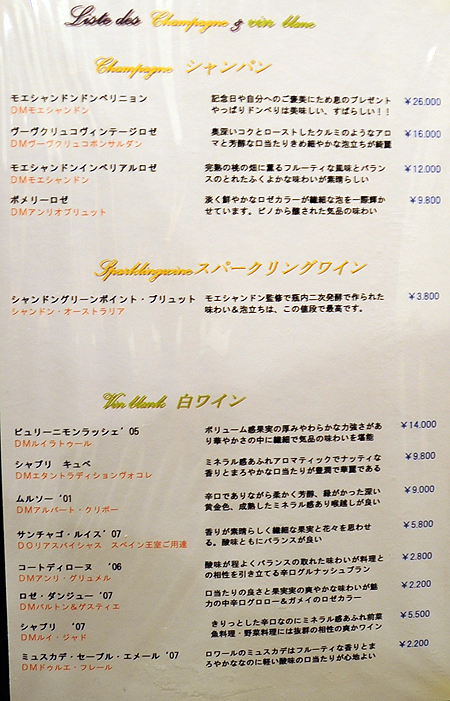 Liste des Champagne & vin blanc
Champagne シャンパン
モエシャンドンドンペリニョン 記念日や自分へのご褒美にため息のプレゼント ￥26,000
DMモエシャンドン やっぱりドンペリは美味しい、すばらしい！！
ヴーヴクリュコヴィンテージロゼ 奥深いコクとローストしたクルミのようなアロ ￥16,000
DMヴーヴクリュコポンサルダン マと芳醇な口当たりきめ細やかな泡立ちが綺麗
モエシャンドンインペリアルロゼ 完熟の桃の畑に薫るフルーティな風味とバラン ￥12,000
DMモエシャンドン スのとれたふくよかな味わいが素晴らしい
ポメリーロゼ 淡く鮮やかなロゼカラーが繊細な泡を一際輝か ￥9,800
DMアンリオブリュット せています。ピノから醸された気品の味わい
Sparklingwine スパークリングワイン
シャンドングリーンポイント・ブリュット モエシャンドン監修で瓶内二次発酵で作られた ￥3,800
シャンドン・オーストラリア 味わい＆泡立ちは、この値段で最高です。
Vin blank 白ワイン
ピュリーニモンラッシェ'05 ボリューム感果実の厚みやわらかな力強さがあ ￥14,000
DMルイラトゥール り華やかさの中に繊細で気品の味わいを堪能
シャブリ キュベ ミネラル感あふれアロマティックでナッティな ￥9,800
DMエタントラディションヴォコレ 香りとまろやかな口当たりが豊潤で華麗である
ムルソー '01 辛口でありながら柔かく芳醇、緑がかった深い ￥9,000
DMアルバート・グリボー 黄金色、成熟したミネラル感あり喉越しが良い
サンチャゴ・ルイス'07 香りが素晴らしく繊細な果実と花々を思わせ ￥5,800
DOリアスバイシャス スペイン王室ご用達 る。酸味ともにバランスが良い
コートディローヌ '06 酸味が程よくバランスの取れた味わいが料理と ￥2,800
DMアンリ・グリュメル の相性を引き立てる辛口グルナッシュブラン
ロゼ・ダンジュー'07 口当たりの良さと果実実の爽やかな味わいが魅 ￥2,200
DMバルトン＆ゲスティエ 力の中辛口グロロー＆ガメイのロゼカラー
シャブリ '07 きりっとした辛口なのにミネラル感あふれ前菜 ￥5,500
DMルイ・ジャド 魚料理・野菜料理には抜群の相性の爽かワイン
ミュスカデ・セーブル・エメール'07 ロワールのミュスカデはフルーティな香りとま ￥2,200
DMドゥルエ・フレール ろやかななのに軽い酸味の口当たりが心地よい